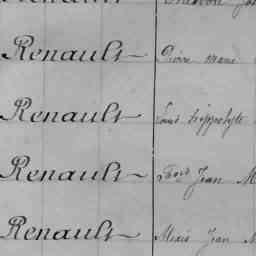 Renault
Renault Pierre Marie
Renault Louis hippolyte
Renault Jean M
Renault Alexis Jean M